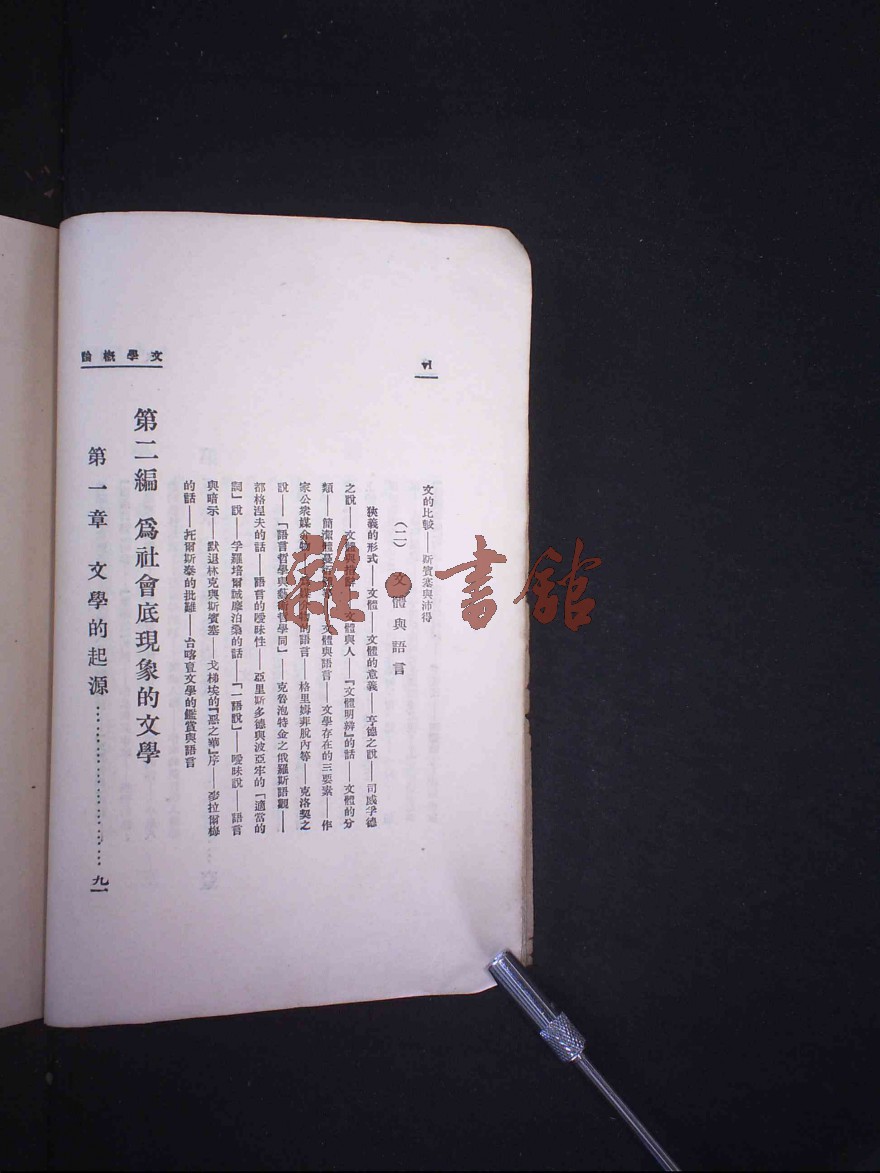 文學概論
文的比較——斯賓塞與沛得
（二）文體與語言
狹義的形式——文體——文體的意義——亨德之說——司威孚德
之說——文體與人——『文體明辨』的話——文體的分
類——簡潔體蔓衍體——文體與語言——文學存在的三要素——作
家公衆媒介物——的語言——格里姆非股內等——克洛契之
說——「語言哲學與藝術哲學同」——克魯泡特金之俄羅斯語觀——
都格涅夫的話——語言的曖昧性——亞里斯多德與波亞牢的「適當的
詞」說——孚羅培爾誡摩泊桑的話——「一語說」——曖昧說——語言
與暗示——默退林克與斯賓塞——戈梯埃的『惡之華』序——麥拉爾梅
的話——托爾斯泰的批難——台喀頁文學的鑑賞與語言
第二編 爲社會底現象的文學
第一章 文學的起源……………………九一
雜·書館